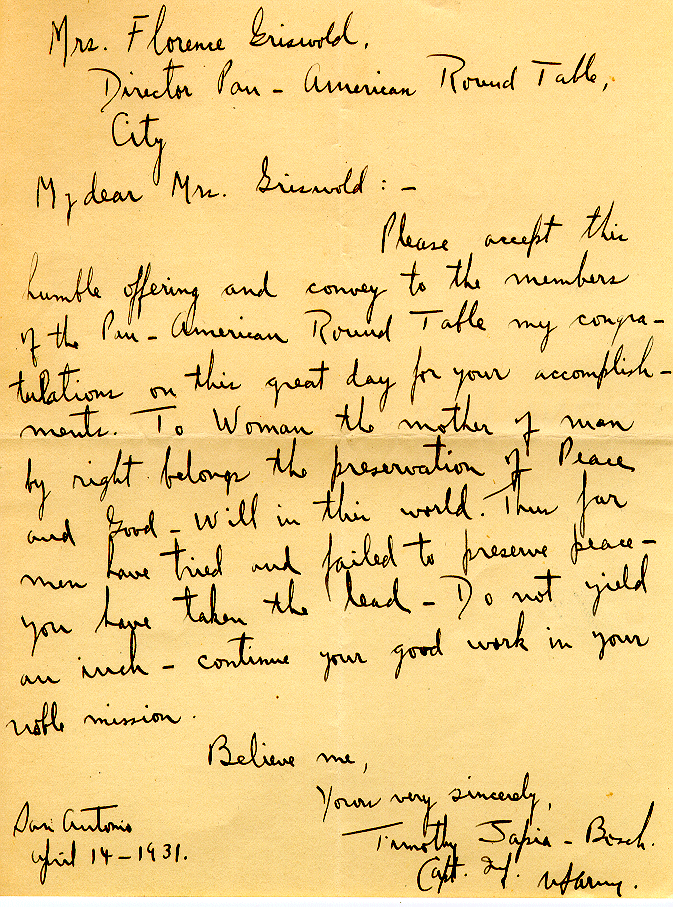 Mrs. Florence Griswold,
Director Pan - American Round Table,
City
My dear Mrs. Griswold : -
Please accept this
humble offering and convey to the members
of the Pan - American Round Table my congra-
tulations on this great day for your accomplish-
ments. To Woman the mother of man
by right belongs the preservation of Peace
and Good - Will in this world. Thus far
men have tried and failed to preserve peace -
you have taken the lead - Do not yield
an inch - continue your good work in your
noble mission.
Believe me,
Yours very sincerely,
Timothy Sapia - Bosch.
Capt. Inf. USArmy.
San Antonio
April 14 - 1931.